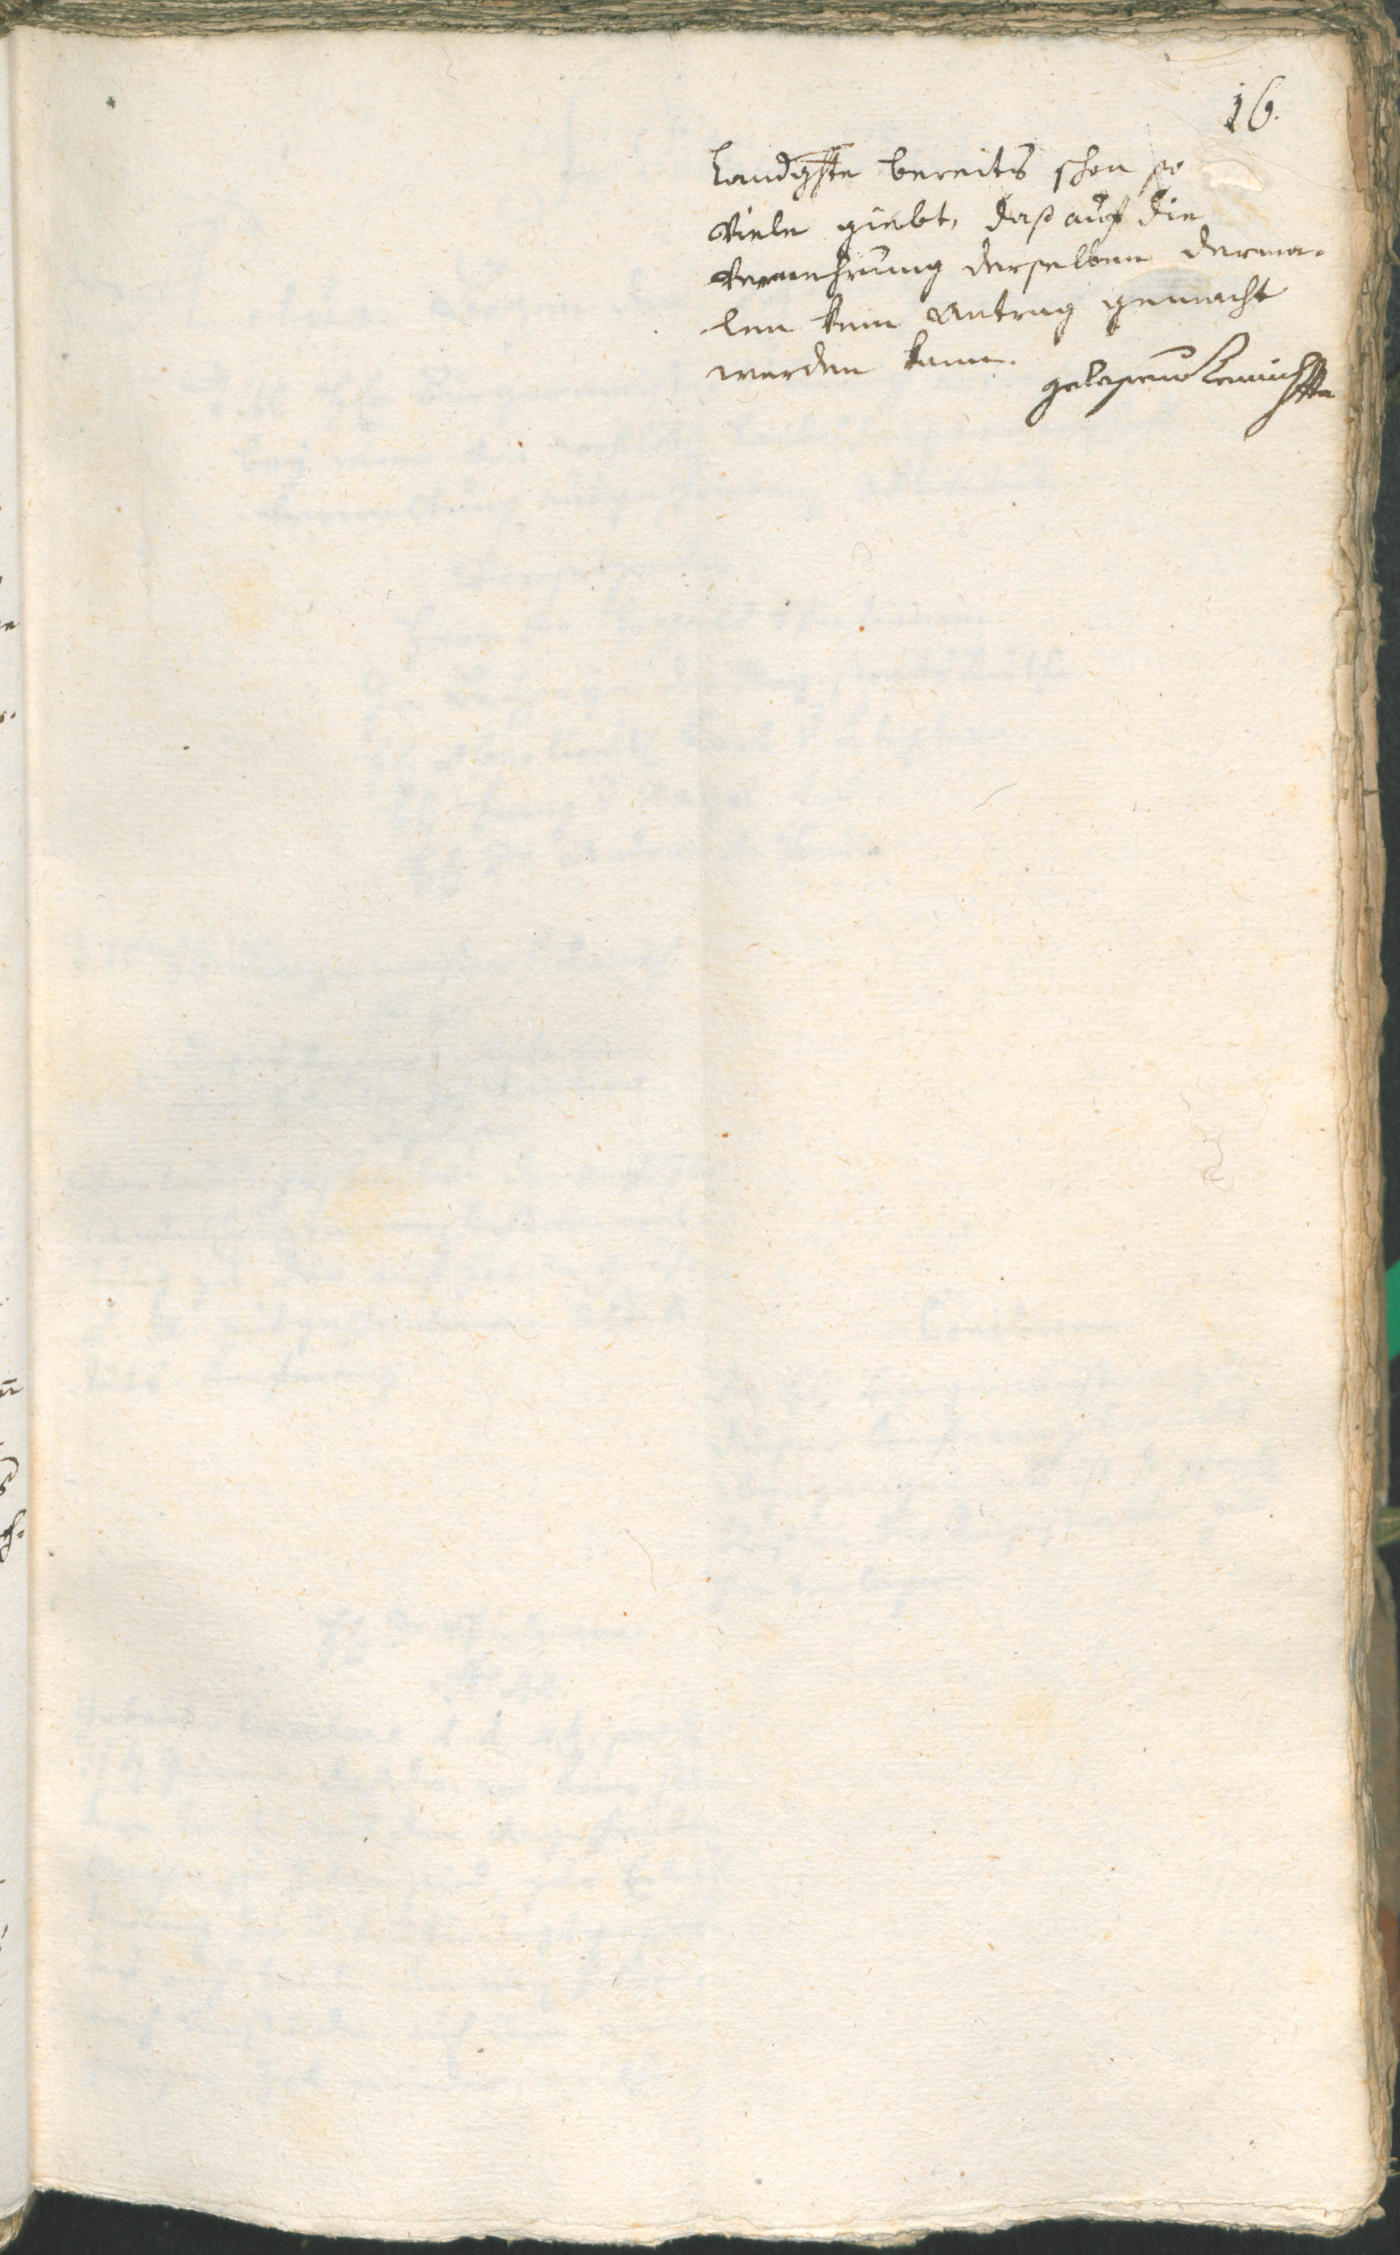 16.
bereits schon so
viele giebt, daß auf die
Vermehrung derselben derma-
len kein Antrag gemacht
werden kann.
gelesen